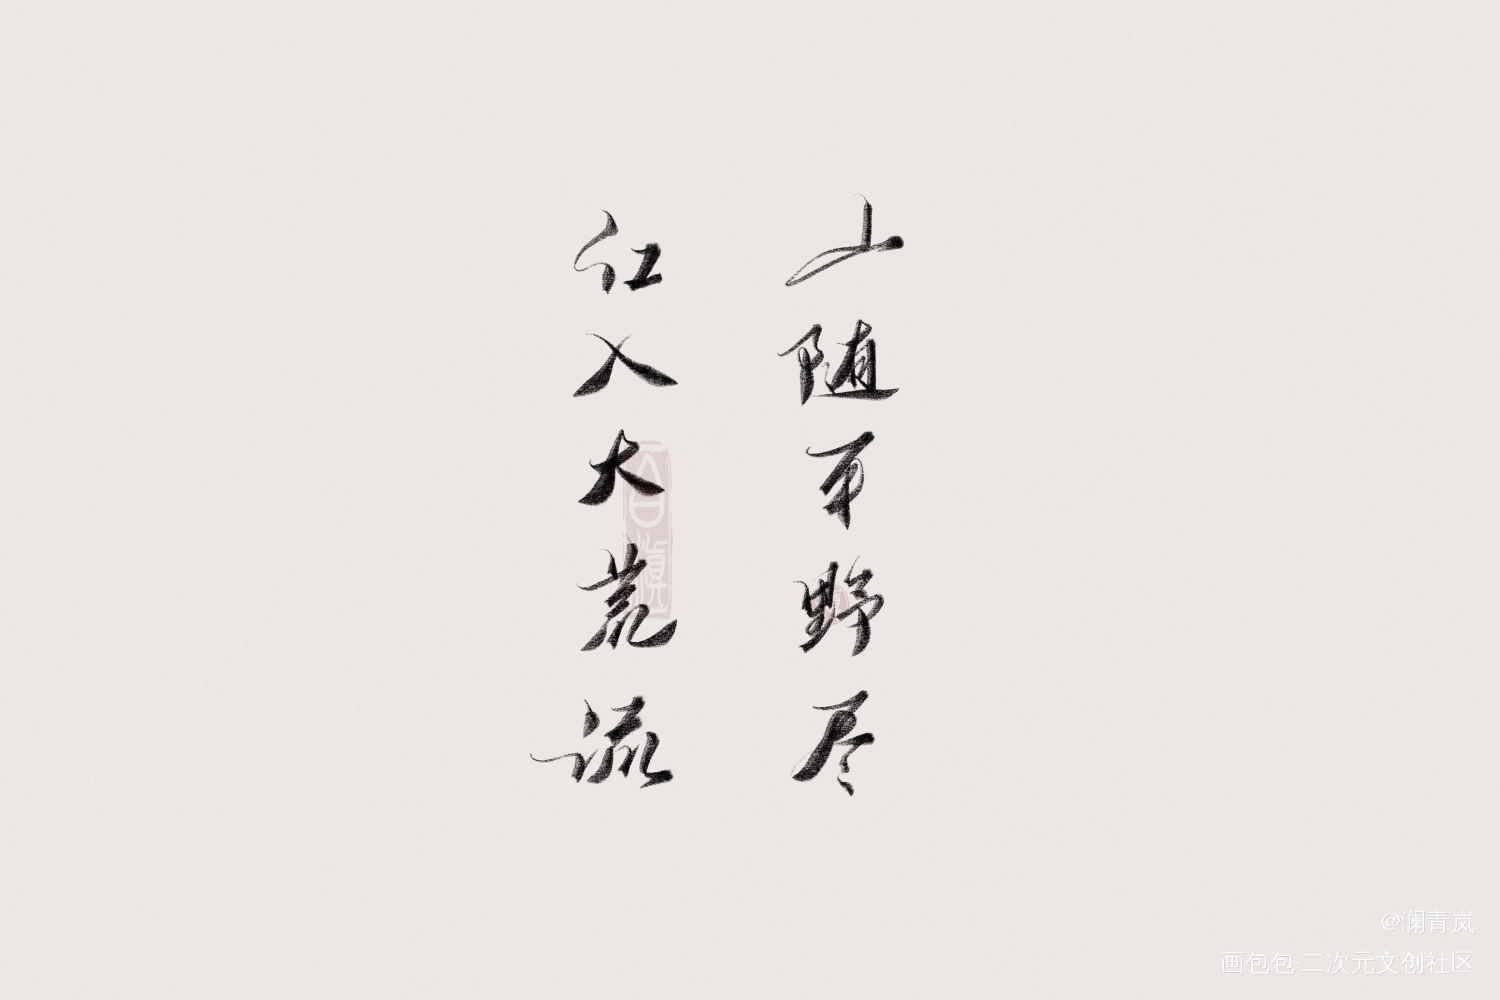 山随平野尽
江入大荒流
@澜青岚
画包包·二次元文创社区